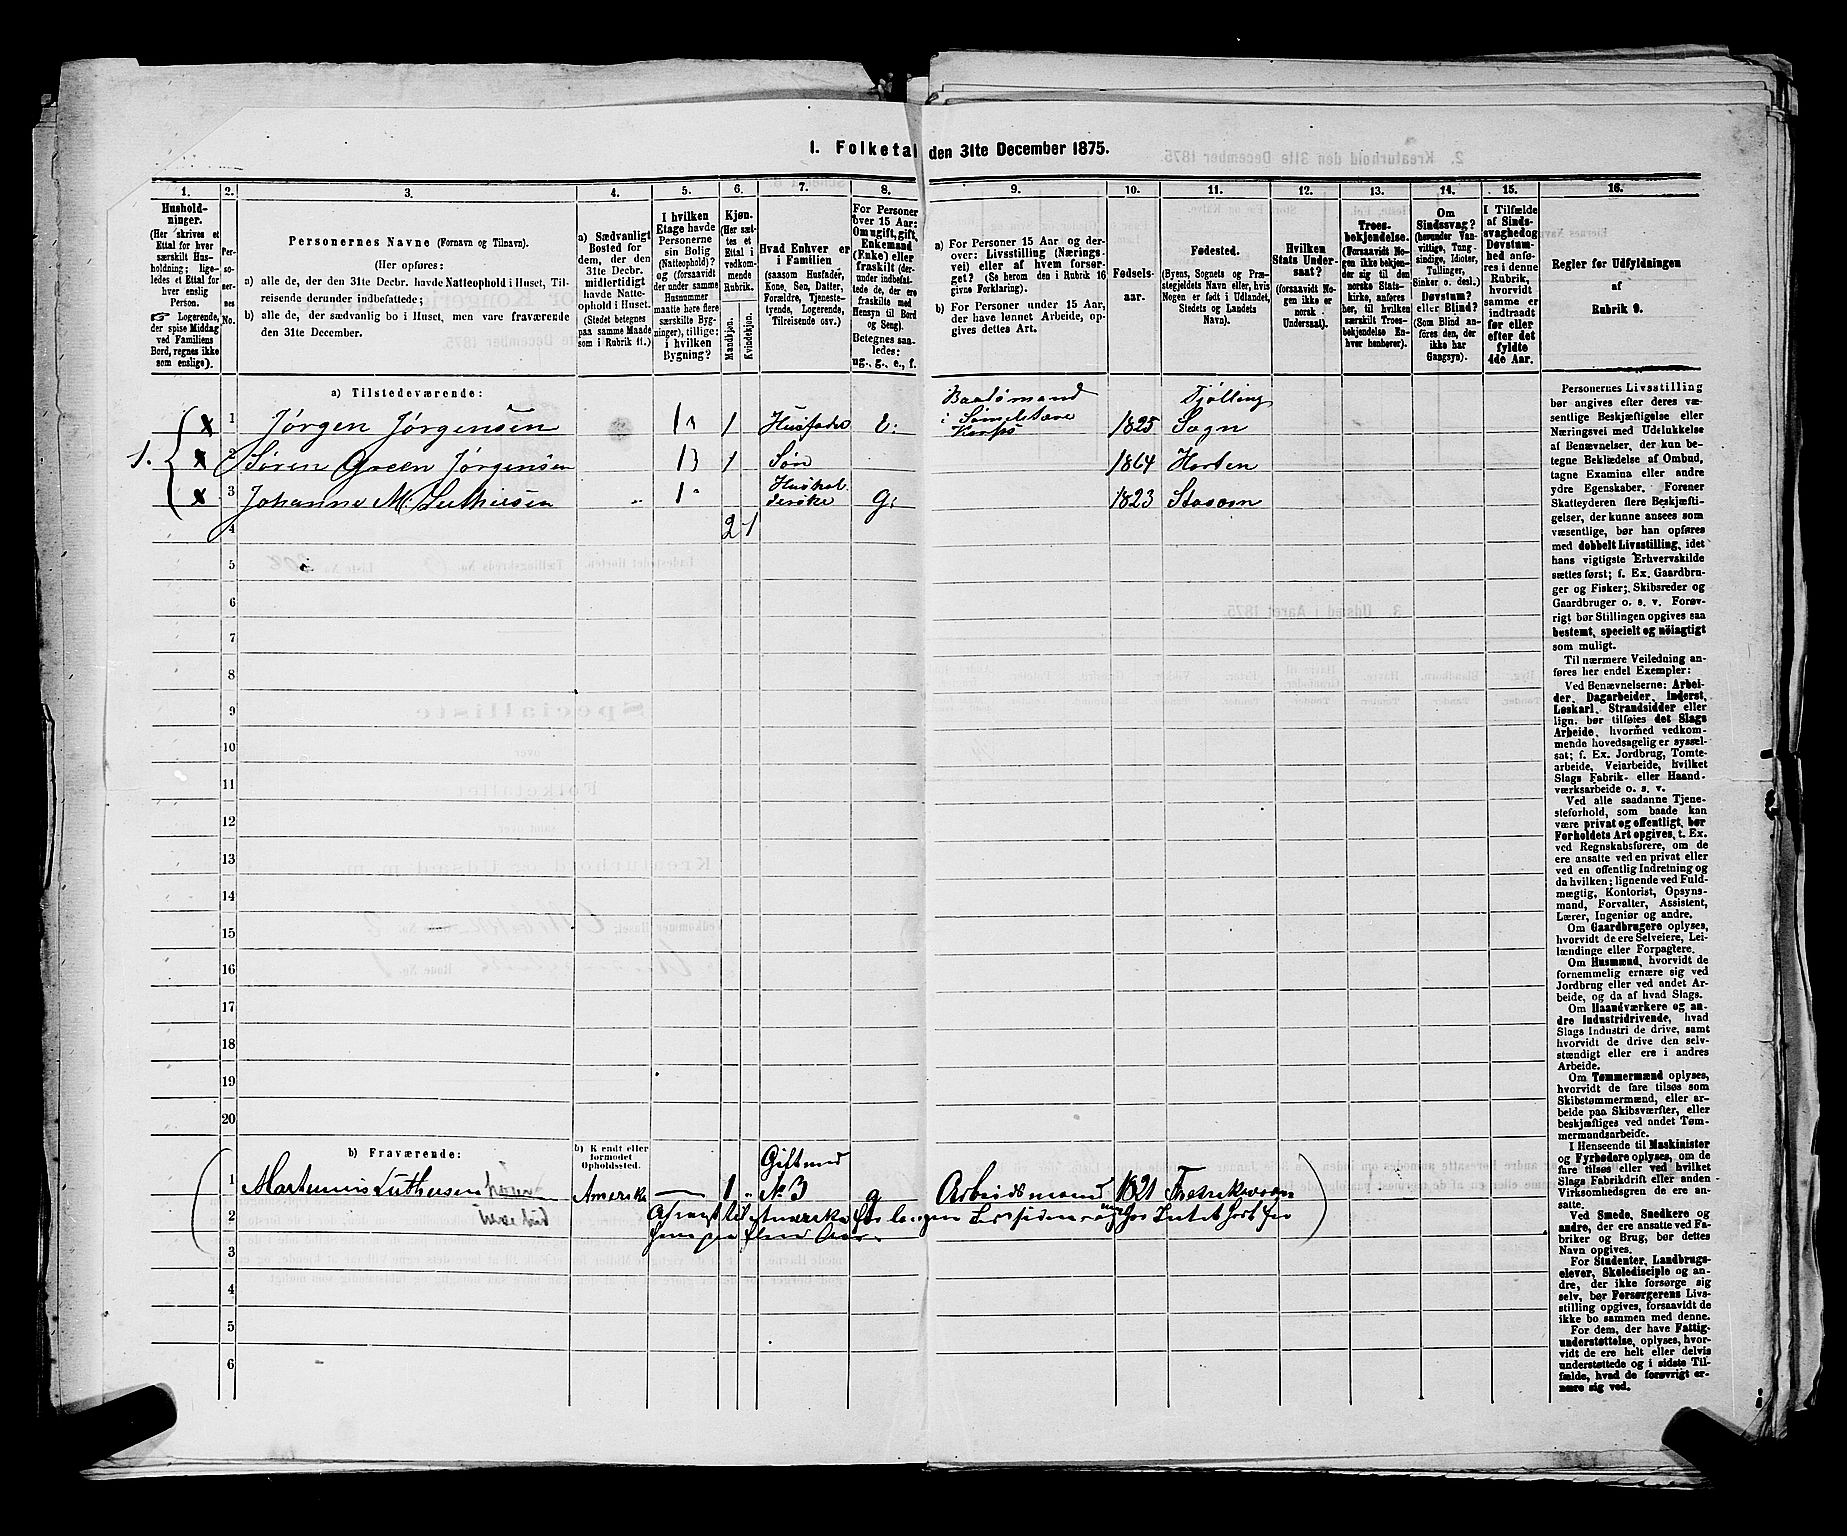 1. Folketal den 31te December 1875.
1. 2. 3. 4. 5. 6. 7. 8. 9. 10. 11. 12. 13. 14. 15. 16.
Husholdninger.
(Her skrives et
Ettal for hver
særskilt Husholdning;
ligeledes et Ettal
for hver
enslig
Person.
Logerende,
der spise Middag
ved Familiens
Bord, regnes ikke
som enslige).
Personernes No.
Personernes Navne (Fornavn og Tilnavn).
(Her opføres:
a) alle de, der den 31te Decbr. havde Natteophold i Huset, Tilreisende
derunder indbefattede;
b) alle de, der sædvanlig bo i Huset, men vare fraværende
den 31te December.
a) Sædvanligt
Bosted for
dem, der den
31te Decbr.
midlertidigt
havde Natteophold
i Huset.
(Stedet betegnes
paa samme Maade
som i Rubrik 11.)
I hvilken
Etage havde
Personerne
sin Bolig
(Natteophold)?
og (forsaavidt
der under samme
Husnummer
maatte høre flere
særskilte Bygninger),
tillige:
i hvilken
Bygning?
Kjøn.
(Her sættes
et Ettal i
vedkommende
Rubrik.
Mandkjøn.
Kvindekjøn.
Hvad Enhver er
i Familien
(saasom Husfader,
Kone, Søn, Datter,
Forældre, Tjenestetyende,
Logerende,
Tilreisende osv.)
For Personer
over 15 Aar:
Om ugift, gift,
Enkemand
(Enke) eller
fraskilt (derunder
indbefattede
de, der ere
fraskilte med
Hensyn til Bord
og Seng).
Betegnes saaledes:
ug., g., e., f.
a) For Personer 15 Aar og derover:
Livsstilling (Næringsvei)
eller af hvem forsørget?
(Se herom den i Rubrik 16
givne Forklaring).
b) For Personer under 15 Aar,
der have lønnet Arbeide, opgives
dettes Art.
Fødselsaar.
Fødested.
(Byens, Sognets og Præstegjeldets
Navn eller, hvis
Nogen er født i Udlandet,
Stedets og Landets
Navn).
Hvilken
Stats Undersaat?
(forsaavidt Nogen
ikke er
norsk
Undersaat).
Troesbekjendelse.
(Forsaavidt Nogen
ikke bekjender
sig til den
norske Statskirke,
anføres
her, til hvilken
særskilt Troesbekjendelse
Enhver
henhører).
Om
Sindssvag?
(herunder Vanvittige,
Tungsindige,
Idioter,
Tullinger,
Sinker o. desl.)
Døvstum?
eller Blind?
(Som Blind anføres
den, der
ikke har
Gangsyn).
I Tilfælde
af Sindssvaghed
og
Døvstumhed
anføres
i denne
Rubrik,
hvorvidt
samme er
indtraadt
før eller
efter det
fyldte
4de Aar.
Regler for Udfyldningen
af
Rubrik 9.
a) Tilstedeværende:
1. x 1 Jørgen Jørgensen 1 1 Husfader e. Baadsmand i Korps 1825 Tjølling Sogn
x 2 Søren Green Jørgensen 1 1 Søn 1864 Horten
x 3 Johanne M. Luthersen 1 Husholderske g. 1823
4 2 1
5
6
7
8
9
10
11
12
13
14
15
16
17
18
19
20
b) Fraværende:
b) Kjendt eller
formodet
Opholdssted.
1 Martinius Luthersen Amerika 1 Gift med No 3 g Arbeidsmand 1821
2 til Amerika for længe
3 Aar
4
5
6
Personernes Livsstilling
bør angives efter deres væsentlige
Beskjæftigelse eller
Næringsvei med Udelukkelse
af Benævnelser, der kun betegne
Beklædelse af Ombud,
tagne Examina eller andre
ydre Egenskaber. Forener
Skatteyderen flere Beskjæftigelser,
der kunne ansees som
væsentlige, bør han opføres
med dobbelt Livsstilling, idet
hans vigtigste Erhvervskilde
sættes først; f. Ex. Gaardbruger
og Fisker; Skibsreder og
Gaardbruger o. s. v. Forøvrigt
bør Stillingen opgives saa
bestemt, specielt og nöiagtigt
som muligt.
Til nærmere Veiledning anføres
her endel Exempler:
Ved Benævnelserne: Arbeider,
Dagarbeider, Inderst,
Løskarl, Strandsidder eller
lign. bør tilføies det Slags
Arbeide, hvormed vedkommende
hovedsagelig er sysselsat;
f. Ex. Jordbrug, Tomtearbeide,
Veiarbeide, hvilket
Slags Fabrik- eller Haandværksarbeide
o. s. v.
Ved alle saadanne Tjenesteforhold,
som baade kan
være privat og offentligt, bør
Forholdets Art opgives, t. Ex.
ved Regnskabsførere, om de
ere ansatte ved en privat eller
ved en offentlig Indretning og
da hvilken; lignende ved Fuldmægtig,
Kontorist, Opsynsmand,
Forvalter, Assistent,
Lærer, Ingeniør og andre.
Om Gaardbrugere oplyses,
hvorvidt de ere Selveiere, Leilændinge
eller Forpagtere.
Om Husmænd, hvorvidt de
fornemmelig ernære sig ved
Jordbrug eller ved andet Arbeide,
og da af hvad Slags.
Om Haandværkere og andre
Industridrivende, hvad
Slags Industri de drive, samt
hvorvidt de drive den selvstændigt
eller ere i andres
Arbeide.
Om Tømmermænd oplyses,
hvorvidt de fare tilsøs som
Skibstømmermænd, eller arbeide
paa Skibsværfter, eller
beskjæftiges ved andet Tømmermandsarbeide.
I Henseende til Maskinister
og Fyrbødere oplyses, om de
fare tilsøs eller ved hvilket
Slags Fabrikdrift eller anden
Virksomhedsgren de ere ansatte.
Ved Smede, Snedkere og
andre, der ere ansatte ved Fabriker
og Brug, bør dettes
Navn opgives.
For Studenter, Landbrugselever,
Skoledisciple og andre,
der ikke forsørge sig
selv, bør Forsørgerens Livsstilling
opgives, forsaavidt de
ikke bo sammen med denne.
For dem, der have Fattigunderstøttelse,
oplyses, hvorvidt
de ere helt eller delvis
understøttede og i sidste Tilfælde,
hvad de forøvrigt ernære
sig ved.